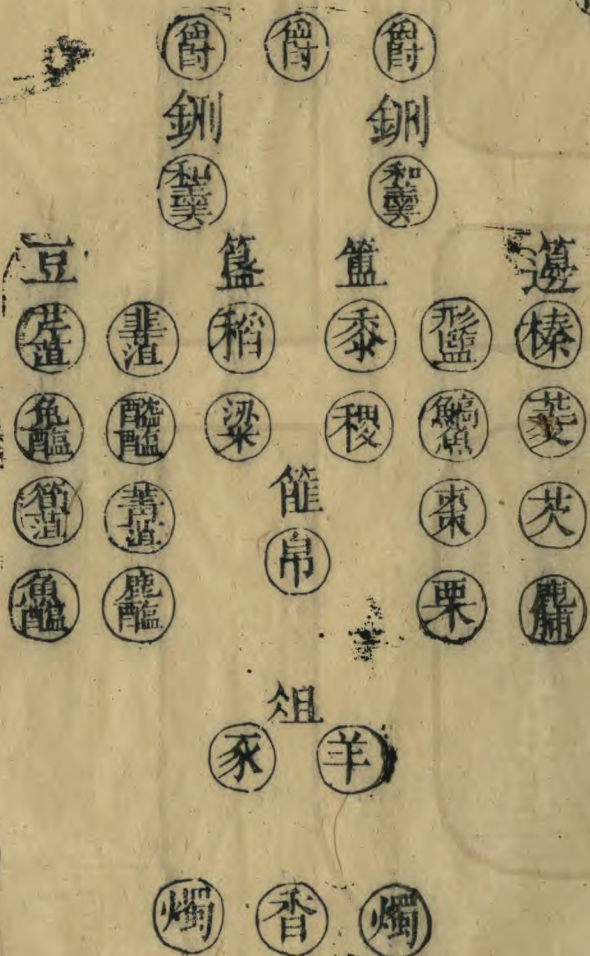 爵 爵 爵
鉶 鉶
和羹 和羹
籩 簠 簋 豆
榛 形鹽 黍 稻 韭菹 芹菹
菱 鰝魚 稷 粱 醓醢 兔醢
篚
芡 棗 菁菹 筍菹
帛
鹿脯 栗 鹿醢 魚醢
俎
羊 豕
燭 香 燭